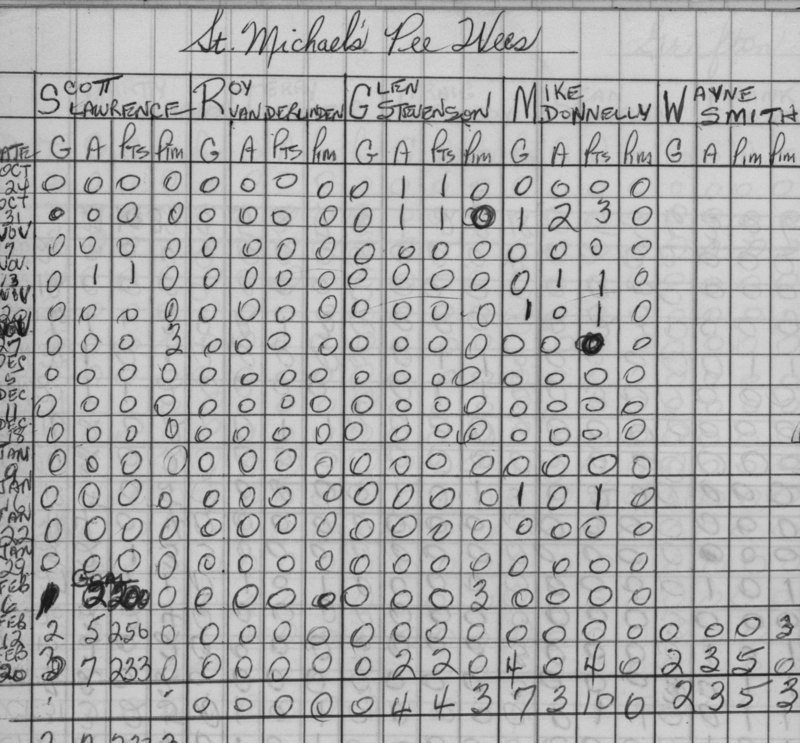 St. Michael's Pee Wees
SCOTT LAWRENCE ROY VANDERLINDEN GLEN STEVENSON MIKE DONNELLY WAYNE SMITH
DATE G A Pts Pim G A Pts Pim G A Pts Pim G A Pts Pim G A Pim Pim
OCT 24 0 0 0 0 0 0 0 0 0 1 1 0 0 0 0 0
OCT 31 0 0 0 0 0 0 0 0 0 1 1 0 1 2 3 0
NOV 7 0 0 0 0 0 0 0 0 0 0 0 0 0 0 0 0
NOV. 13 0 1 1 0 0 0 0 0 0 0 0 0 0 1 1 0
NOV 0 0 0 0 0 0 0 0 0 0 0 0 1 0 1 0
NOV 27 0 0 0 3 0 0 0 0 0 0 0 0 0 0 0
DES 5 0 0 0 0 0 0 0 0 0 0 0 0 0 0 0 0
DEC 11 0 0 0 0 0 0 0 0 0 0 0 0 0 0 0 0
DEC 18 0 0 0 0 0 0 0 0 0 0 0 0 0 0 0 0
JAN 9 0 0 0 0 0 0 0 0 0 0 0 0 0 0 0 0
JAN 0 0 0 0 0 0 0 0 0 0 0 0 1 0 1 0
JAN 22 0 0 0 0 0 0 0 0 0 0 0 0 0 0 0 0
JAN 29 0 0 0 0 0 0 0 0 0 0 0 0 0 0 0 0
FEB 6 2 200 0 0 0 0 0 0 0 0 3 0 0 0 0
FEB 12 2 5 256 0 0 0 0 0 0 0 0 0 0 0 0 0 0 0 0 3
FEB 20 3 7 233 0 0 0 0 0 0 2 2 0 4 0 4 0 2 3 5 0
0 0 0 0 0 4 4 3 7 3 10 0 2 3 5 3